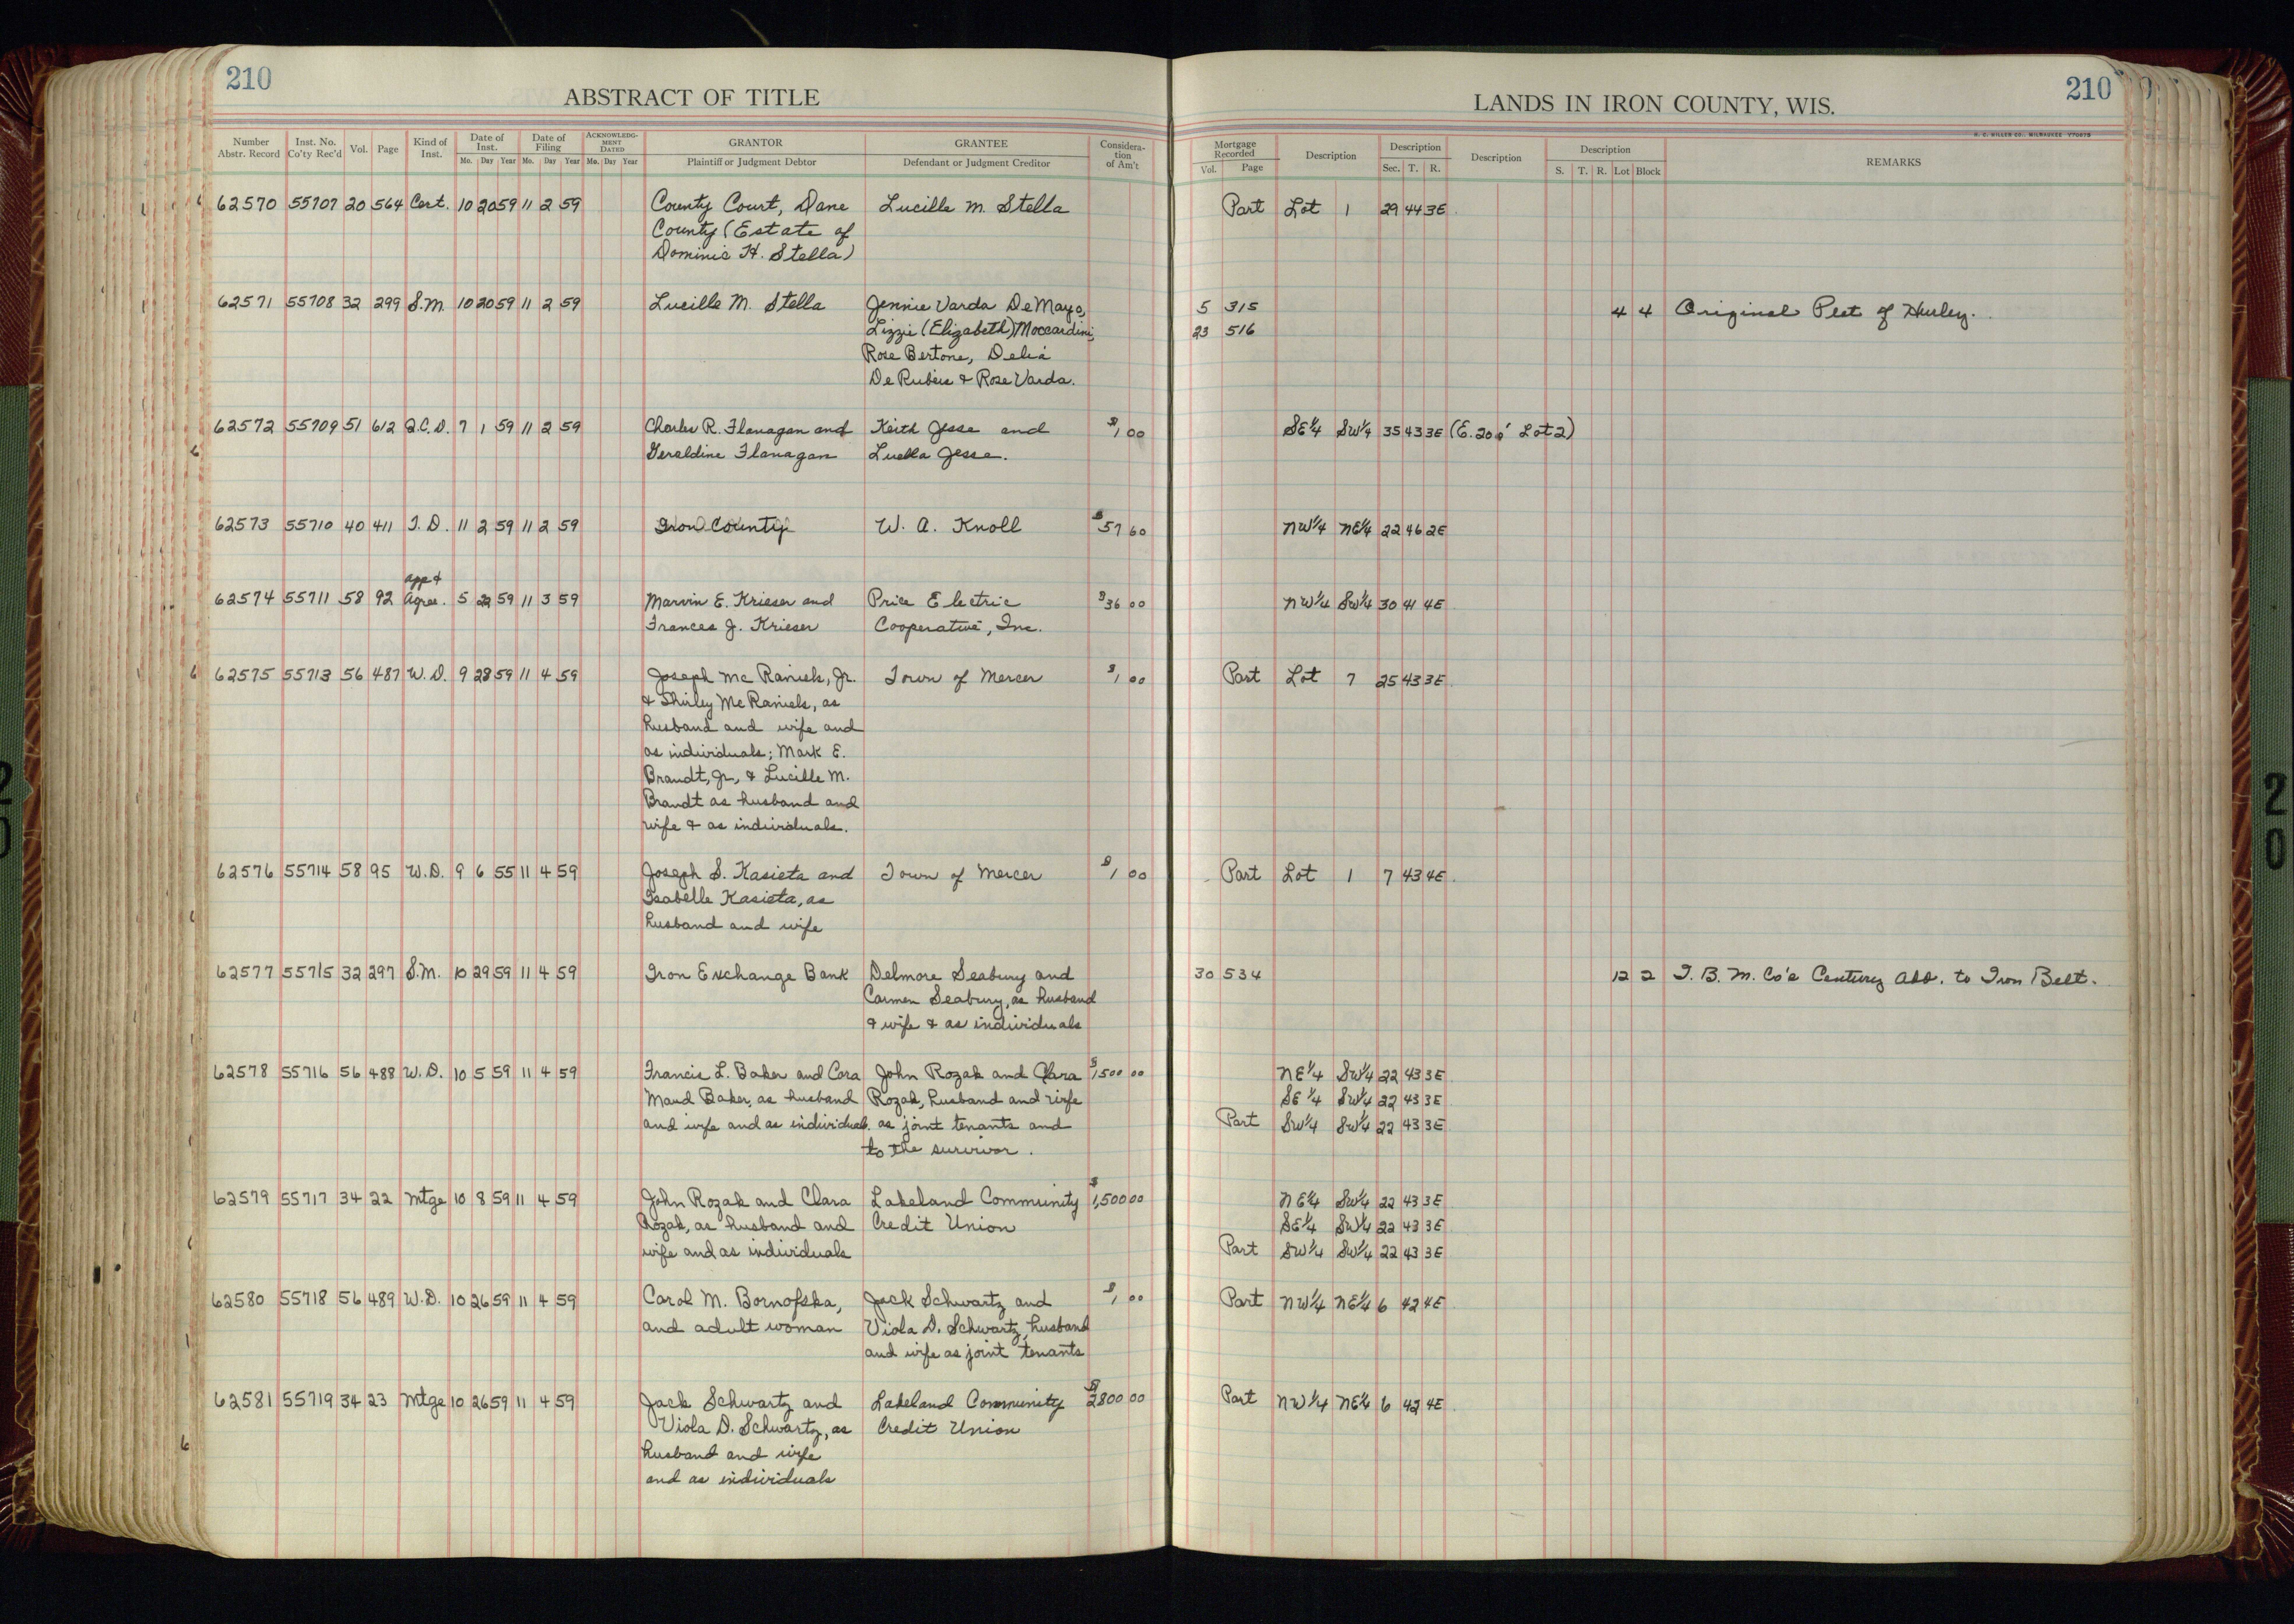 210
ABSTRACT OF TITLE
Number Abstr. Record | Inst. No. Co'ty Rec'd | Vol. | Page | Kind of Inst. | Date of Inst. Mo. Day Year | Date of Filing Mo. Day Year | ACKNOWLEDGMENT DATED Mo. Day Year | GRANTOR Plaintiff or Judgment Debtor | GRANTEE Defendant or Judgment Creditor | Consideration of Am't
62570 55707 20 564 Cert. 10 20 59 11 2 59 County Court, Dane Lucille M. Stella
County (Estate of
Dominic H. Stella)
62571 55708 32 299 S.M. 10 20 59 11 2 59 Lucille M. Stella Jennie Varda DeMayo,
Lizzie (Elizabeth) Moccardini,
Rose Bertone, Delia
DeRubeis & Rose Varda.
62572 55709 51 612 Q.C.D. 7 1 59 11 2 59 Charles R. Flanagan and Keith Jesse and $1 00
Geraldine Flanagan Luella Jesse.
62573 55710 40 411 T.D. 11 2 59 11 2 59 Iron County W. A. Knoll $57 60
App &
62574 55711 58 92 Agree. 5 22 59 11 3 59 Marvin E. Krieser and Price Electric $36 00
Frances J. Krieser Cooperative, Inc.
62575 55713 56 487 W.D. 9 28 59 11 4 59 Joseph Mc Raniels, Jr. Town of Mercer $1 00
& Shirley McRaniels, as
husband and wife and
as individuals; Mark E.
Brandt, Jr., & Lucille M.
Brandt as husband and
wife & as individuals.
62576 55714 58 95 W.D. 9 6 55 11 4 59 Joseph S. Kasieta and Town of Mercer $1 00
Isabelle Kasieta, as
husband and wife
62577 55715 32 297 S.M. 10 29 59 11 4 59 Iron Exchange Bank Delmore Seabury and
Carmen Seabury, as husband
& wife & as individuals
62578 55716 56 488 W.D. 10 5 59 11 4 59 Francis L. Baker and Cora John Rozak and Clara $1500 00
Maud Baker, as husband Rozak, husband and wife
and wife and as individuals. as joint tenants and
to the survivor.
62579 55717 34 22 Mtge 10 8 59 11 4 59 John Rozak and Clara Lakeland Community $1,500 00
Rozak, as husband and Credit Union
wife and as individuals
62580 55718 56 489 W.D. 10 26 59 11 4 59 Carol M. Bornofska, Jack Schwartz and $1 00
and adult woman Viola D. Schwartz, husband
and wife as joint tenants
62581 55719 34 23 Mtge 10 26 59 11 4 59 Jack Schwartz and Lakeland Community $2800 00
Viola D. Schwartz, as Credit Union
husband and wife
and as individuals
210
LANDS IN IRON COUNTY, WIS.
H. C. MILLER CO., MILWAUKEE Y70675
Mortgage Recorded Vol. Page | Description | Description Sec. T. R. | Description | Description S. T. R. Lot Block | REMARKS
Part Lot 1 29 44 3E
5 315 4 4 Original Plat of Hurley.
23 516
SE 1/4 SW 1/4 35 43 3E (E. 200' Lot 2)
NW 1/4 NE 1/4 22 46 2E
NW 1/4 SW 1/4 30 41 4E
Part Lot 7 25 43 3E
Part Lot 1 7 43 4E
30 534 12 2 I. B. M. Co's Century Add. to Iron Belt.
NE 1/4 SW 1/4 22 43 3E
SE 1/4 SW 1/4 22 43 3E
Part SW 1/4 SW 1/4 22 43 3E
NE 1/4 SW 1/4 22 43 3E
SE 1/4 SW 1/4 22 43 3E
Part SW 1/4 SW 1/4 22 43 3E
Part NW 1/4 NE 1/4 6 42 4E
Part NW 1/4 NE 1/4 6 42 4E
20